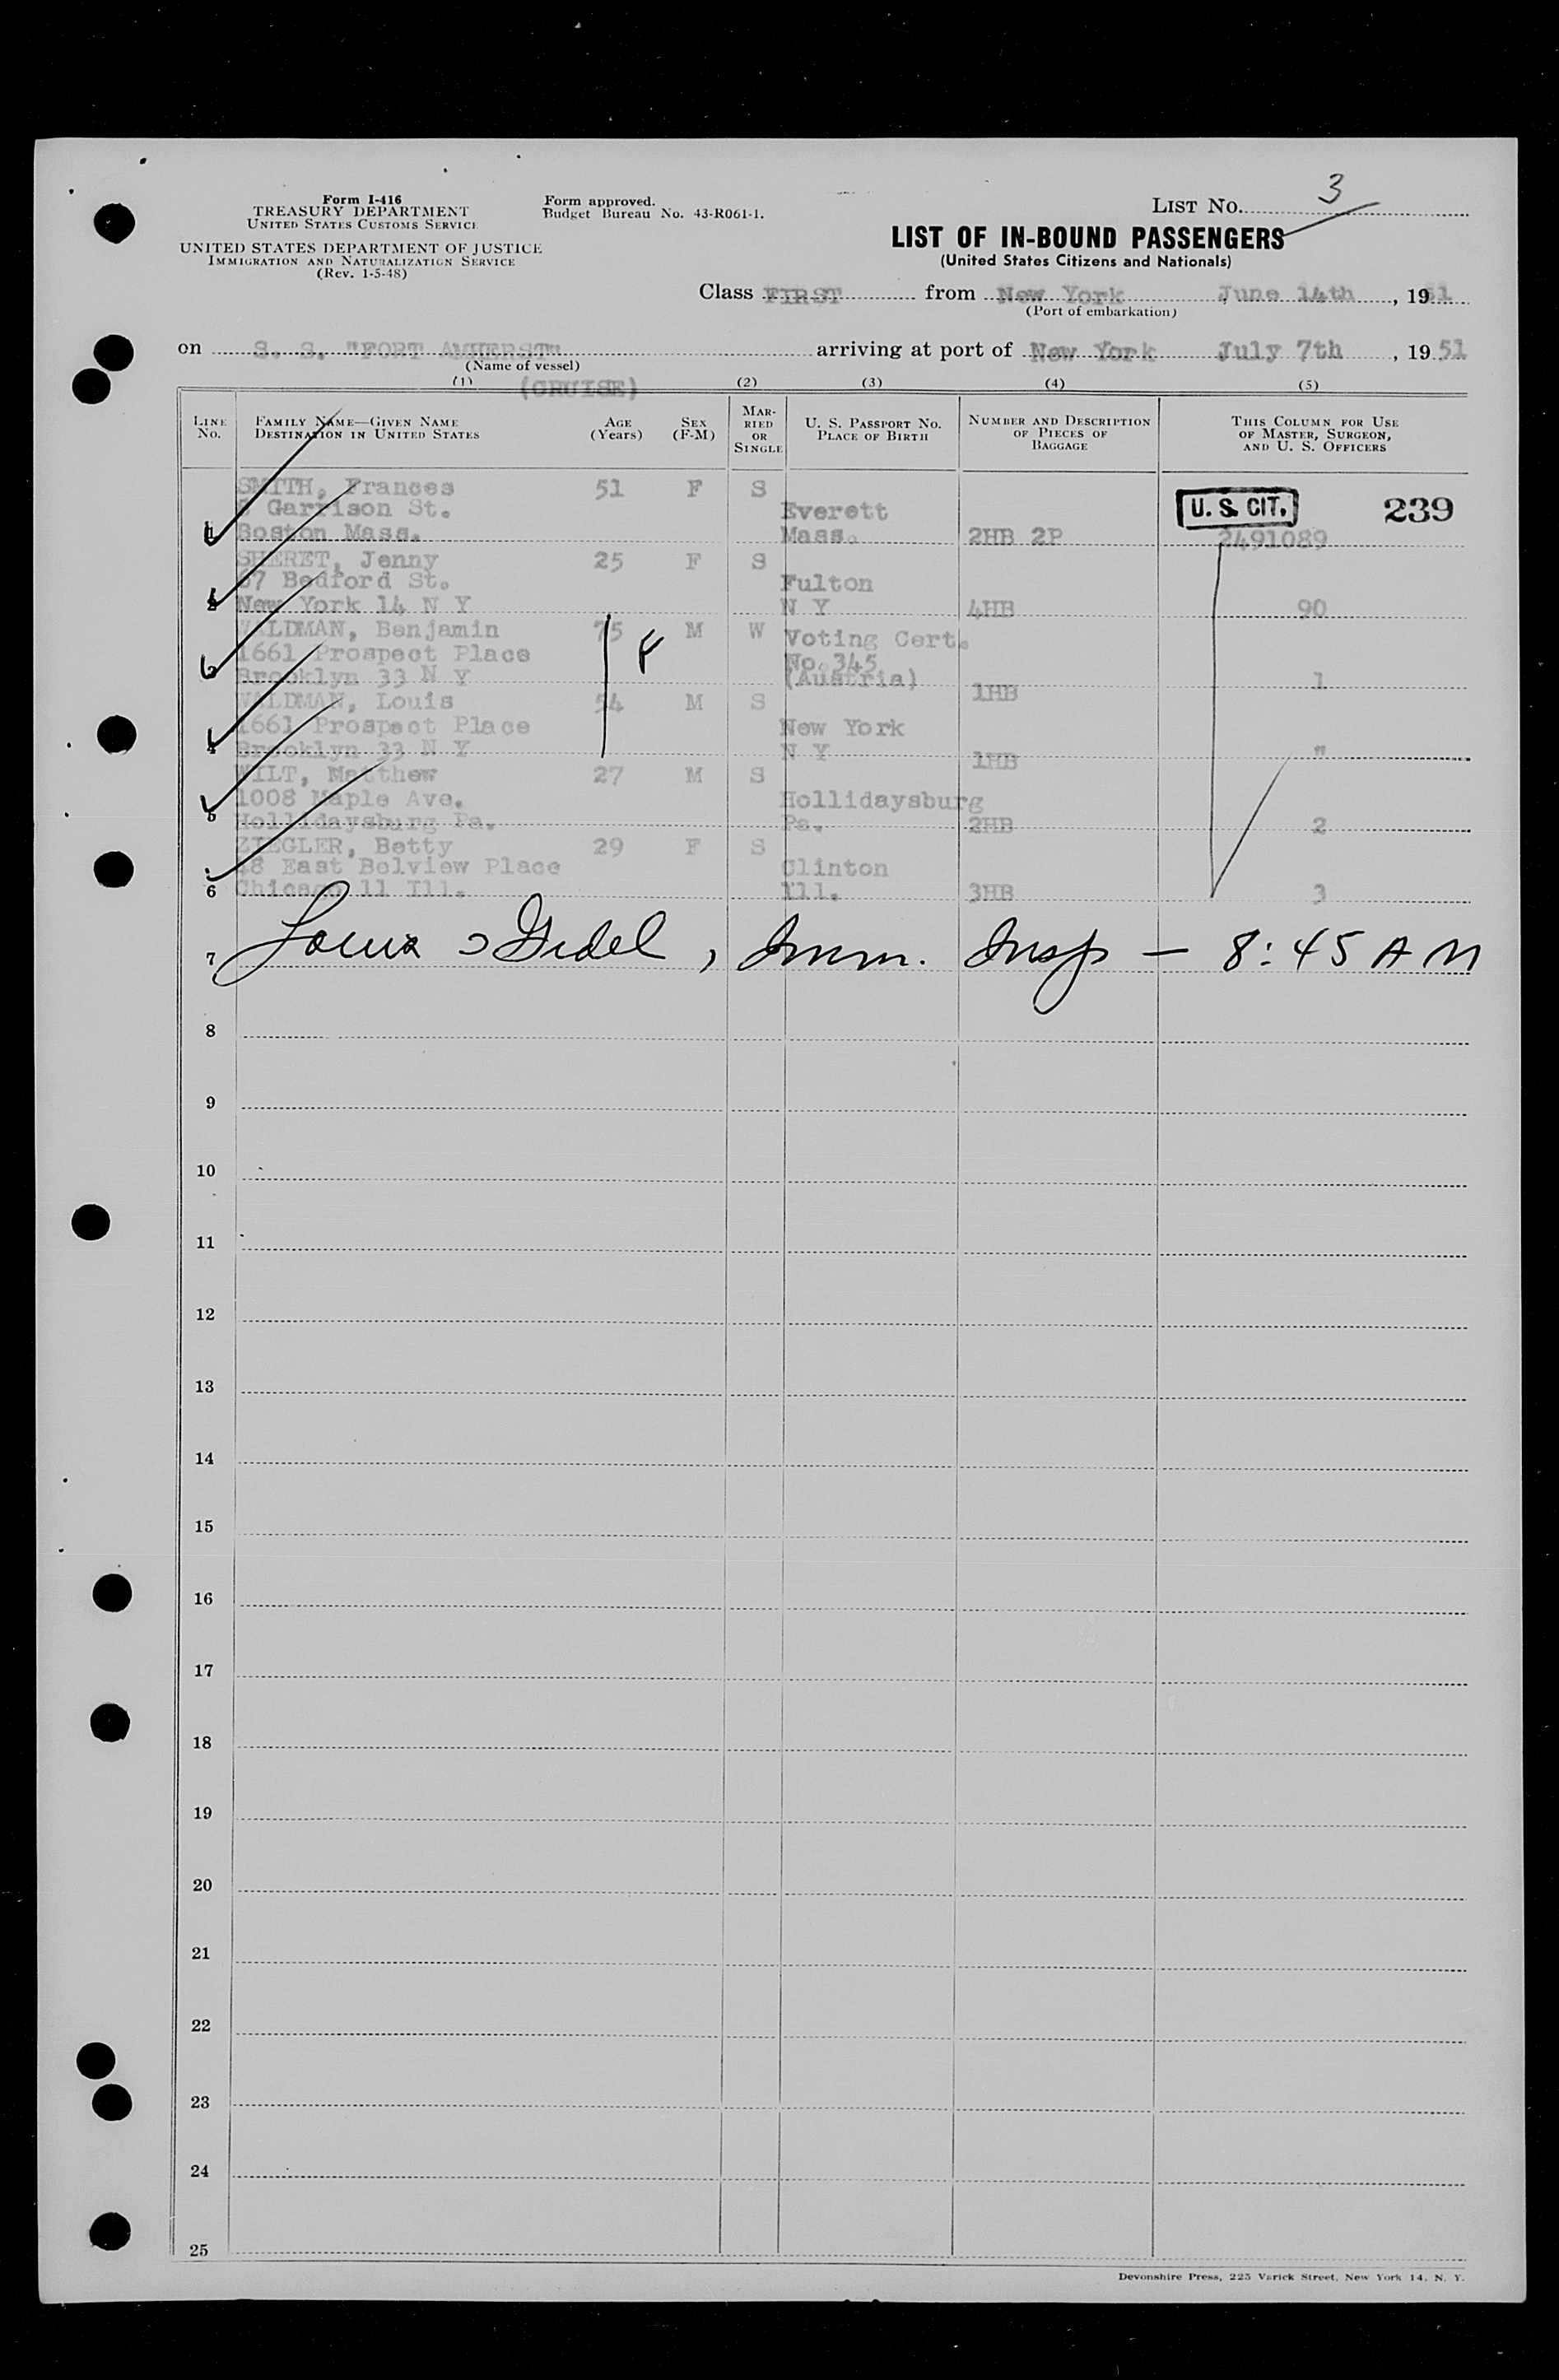 Form I-416
TREASURY DEPARTMENT
UNITED STATES CUSTOMS SERVICE
UNITED STATES DEPARTMENT OF JUSTICE
IMMIGRATION AND NATURALIZATION SERVICE
(Rev. 1-5-48)
Form approved.
Budget Bureau No. 43-R061-1.
LIST NO. 3
LIST OF IN-BOUND PASSENGERS
(United States Citizens and Nationals)
Class FIRST from New York June 14th, 1951
(Port of embarkation)
on S. S. "FORT AMHERST" arriving at port of New York July 7th, 1951
(Name of vessel)
(CRUISE)
(1) (2) (3) (4) (5)
LINE NO.
FAMILY NAME—GIVEN NAME
DESTINATION IN UNITED STATES
AGE
(Years)
SEX
(F-M)
MAR-
RIED
OR
SINGLE
U. S. PASSPORT NO.
PLACE OF BIRTH
NUMBER AND DESCRIPTION
OF PIECES OF
BAGGAGE
THIS COLUMN FOR USE
OF MASTER, SURGEON,
AND U. S. OFFICERS
SMITH, Frances 51 F S
Garrison St. Everett U. S. CIT. 239
1 Boston Mass. Mass. 2HB 2P 2491089
SHERET, Jenny 25 F S
67 Bedford St. Fulton
2 New York 14 N Y N Y 4HB 90
WALDMAN, Benjamin 75 F M W Voting Cert.
1661 Prospect Place No. 345
Brooklyn 33 N Y (Austria) 1HB 1
WALDMAN, Louis 54 M S
1661 Prospect Place New York
4 Brooklyn 33 N Y N Y 1HB "
WILT, Matthew 27 M S
1008 Maple Ave. Hollidaysburg
5 Hollidaysburg Pa. Pa. 2HB 2
ZIEGLER, Betty 29 F S
48 East Belview Place Clinton
6 Chicago 11 Ill. Ill. 3HB 3
7 Imm. Insp — 8:45 AM
8
9
10
11
12
13
14
15
16
17
18
19
20
21
22
23
24
25
Devonshire Press, 225 Varick Street, New York 14, N. Y.